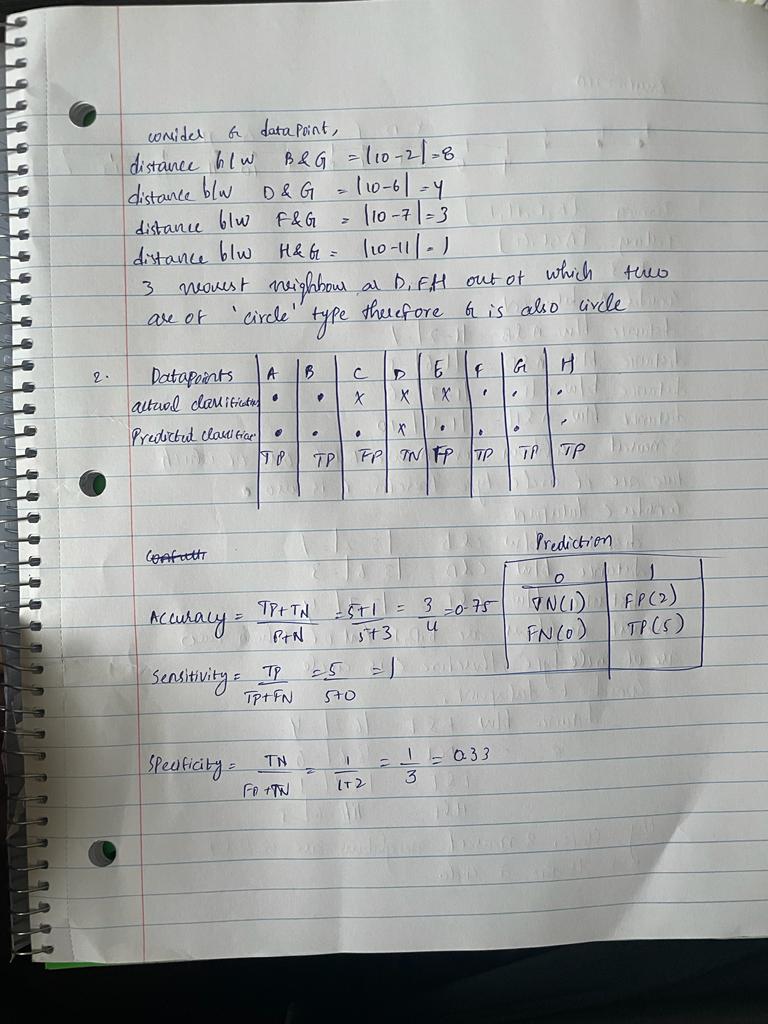 consider G datapoint,
distance b/w B & G = |10-2| = 8
distance b/w D & G = |10-6| = 4
distance b/w F & G = |10-7| = 3
distance b/w H & G = |10-11| = 1
3 nearest neighbour are D, F, H out of which two
are of 'circle' type therefore G is also circle
2. Datapoints A B C D E F G H
actual classification • • x x x • • •
Predicted classification • • • x • • • •
TP TP FP TN FP TP TP TP
Prediction
0 1
Accuracy = TP+TN / P+N = 5+1 / 5+3 = 3/4 = 0.75 TN(1) FP(2)
FN(0) TP(5)
Sensitivity = TP / TP+FN = 5 / 5+0 = 1
Specificity = TN / FP+TN = 1 / 1+2 = 1/3 = 0.33